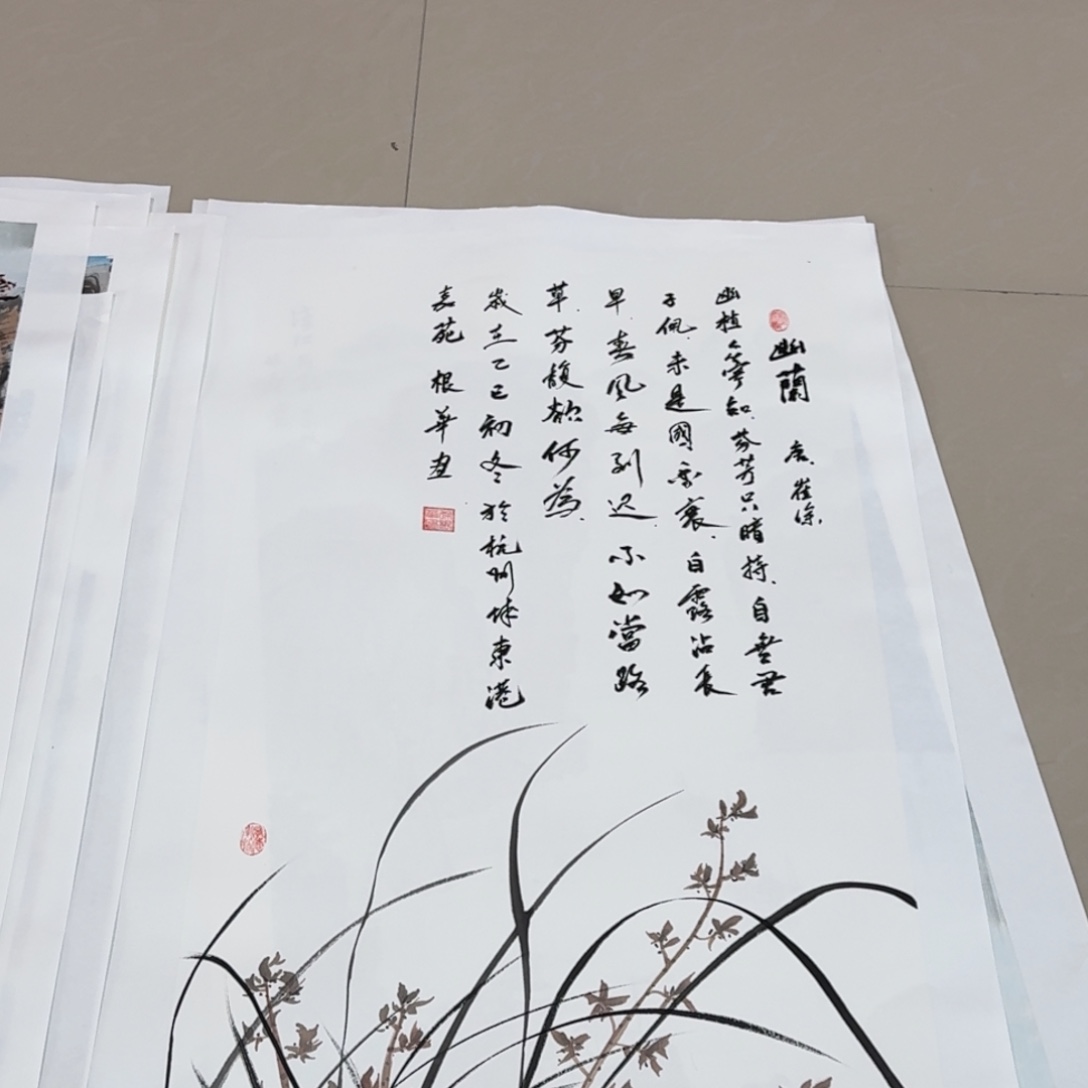 幽蘭 唐 崔涂
幽植众寧知.芬芳只暗持.自無君
子佩.未是國香衰.白露沾長
早.春風每到迟.不如當路
草.芬馥欲何為.
歲在乙巳初冬於杭州東港
嘉苑 根華画